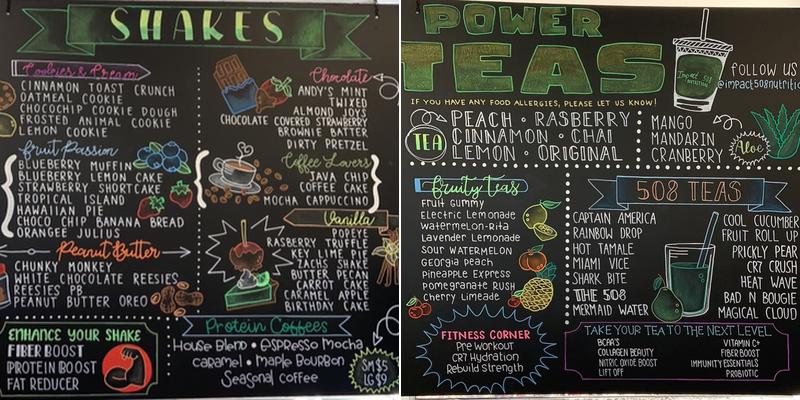 SHAKES
Cookies & Cream
CINNAMON TOAST CRUNCH
OATMEAL COOKIE
CHOCOCHIP COOKIE DOUGH
FROSTED ANIMAL COOKIE
LEMON COOKIE
Fruit Passion
BLUEBERRY MUFFIN
BLUEBERRY LEMON CAKE
STRAWBERRY SHORTCAKE
TROPICAL ISLAND
HAWAIIAN PIE
CHOCO CHIP BANANA BREAD
ORANGEE JULIUS
Peanut Butter
CHUNKY MONKEY
WHITE CHOCOLATE REESIES
REESIES PB
PEANUT BUTTER OREO
ENHANCE YOUR SHAKE
FIBER BOOST
PROTEIN BOOST
FAT REDUCER
Chocolate
ANDY'S MINT
TWIXED
ALMOND JOYS
CHOCOLATE COVERED STRAWBERRY
BROWNIE BATTER
DIRTY PRETZEL
Coffee Lovers
JAVA CHIP
COFFEE CAKE
MOCHA CAPPUCCINO
Vanilla
POPEYE
RASBERRY TRUFFLE
KEY LIME PIE
ZACHS SHAKE
BUTTER PECAN
CARROT CAKE
CARAMEL APPLE
BIRTHDAY CAKE
Protein Coffees
House Blend • espresso Mocha
caramel • Maple Bourbon
Seasonal coffee
SM $5
LG $9
POWER
TEAS
IF YOU HAVE ANY FOOD ALLERGIES, PLEASE LET US KNOW!
Impact 508 nutrition
FOLLOW US
@impact508nutritio
TEA
PEACH • RASBERRY
CINNAMON • CHAI
LEMON • ORIGINAL
MANGO
MANDARIN
CRANBERRY
Aloe
Fruity teas
Fruit Gummy
Electric Lemonade
Watermelon-Rita
Lavender Lemonade
Sour Watermelon
Georgia Peach
Pineapple Express
Pomegranate Rush
Cherry Limeade
508 TEAS
CAPTAIN AMERICA
RAINBOW DROP
HOT TAMALE
MIAMI VICE
SHARK BITE
THE 508
MERMAID WATER
COOL CUCUMBER
FRUIT ROLL UP
PRICKLY PEAR
CR7 CRUSH
HEAT WAVE
BAD N BOUGIE
MAGICAL CLOUD
FITNESS CORNER
Pre Workout
CR7 Hydration
Rebuild Strength
TAKE YOUR TEA TO THE NEXT LEVEL
BCAA'S
COLLAGEN BEAUTY
NITRIC OXIDE BOOST
LIFT OFF
VITAMIN C+
FIBER BOOST
IMMUNITY ESSENTIALS
PROBIOTIC